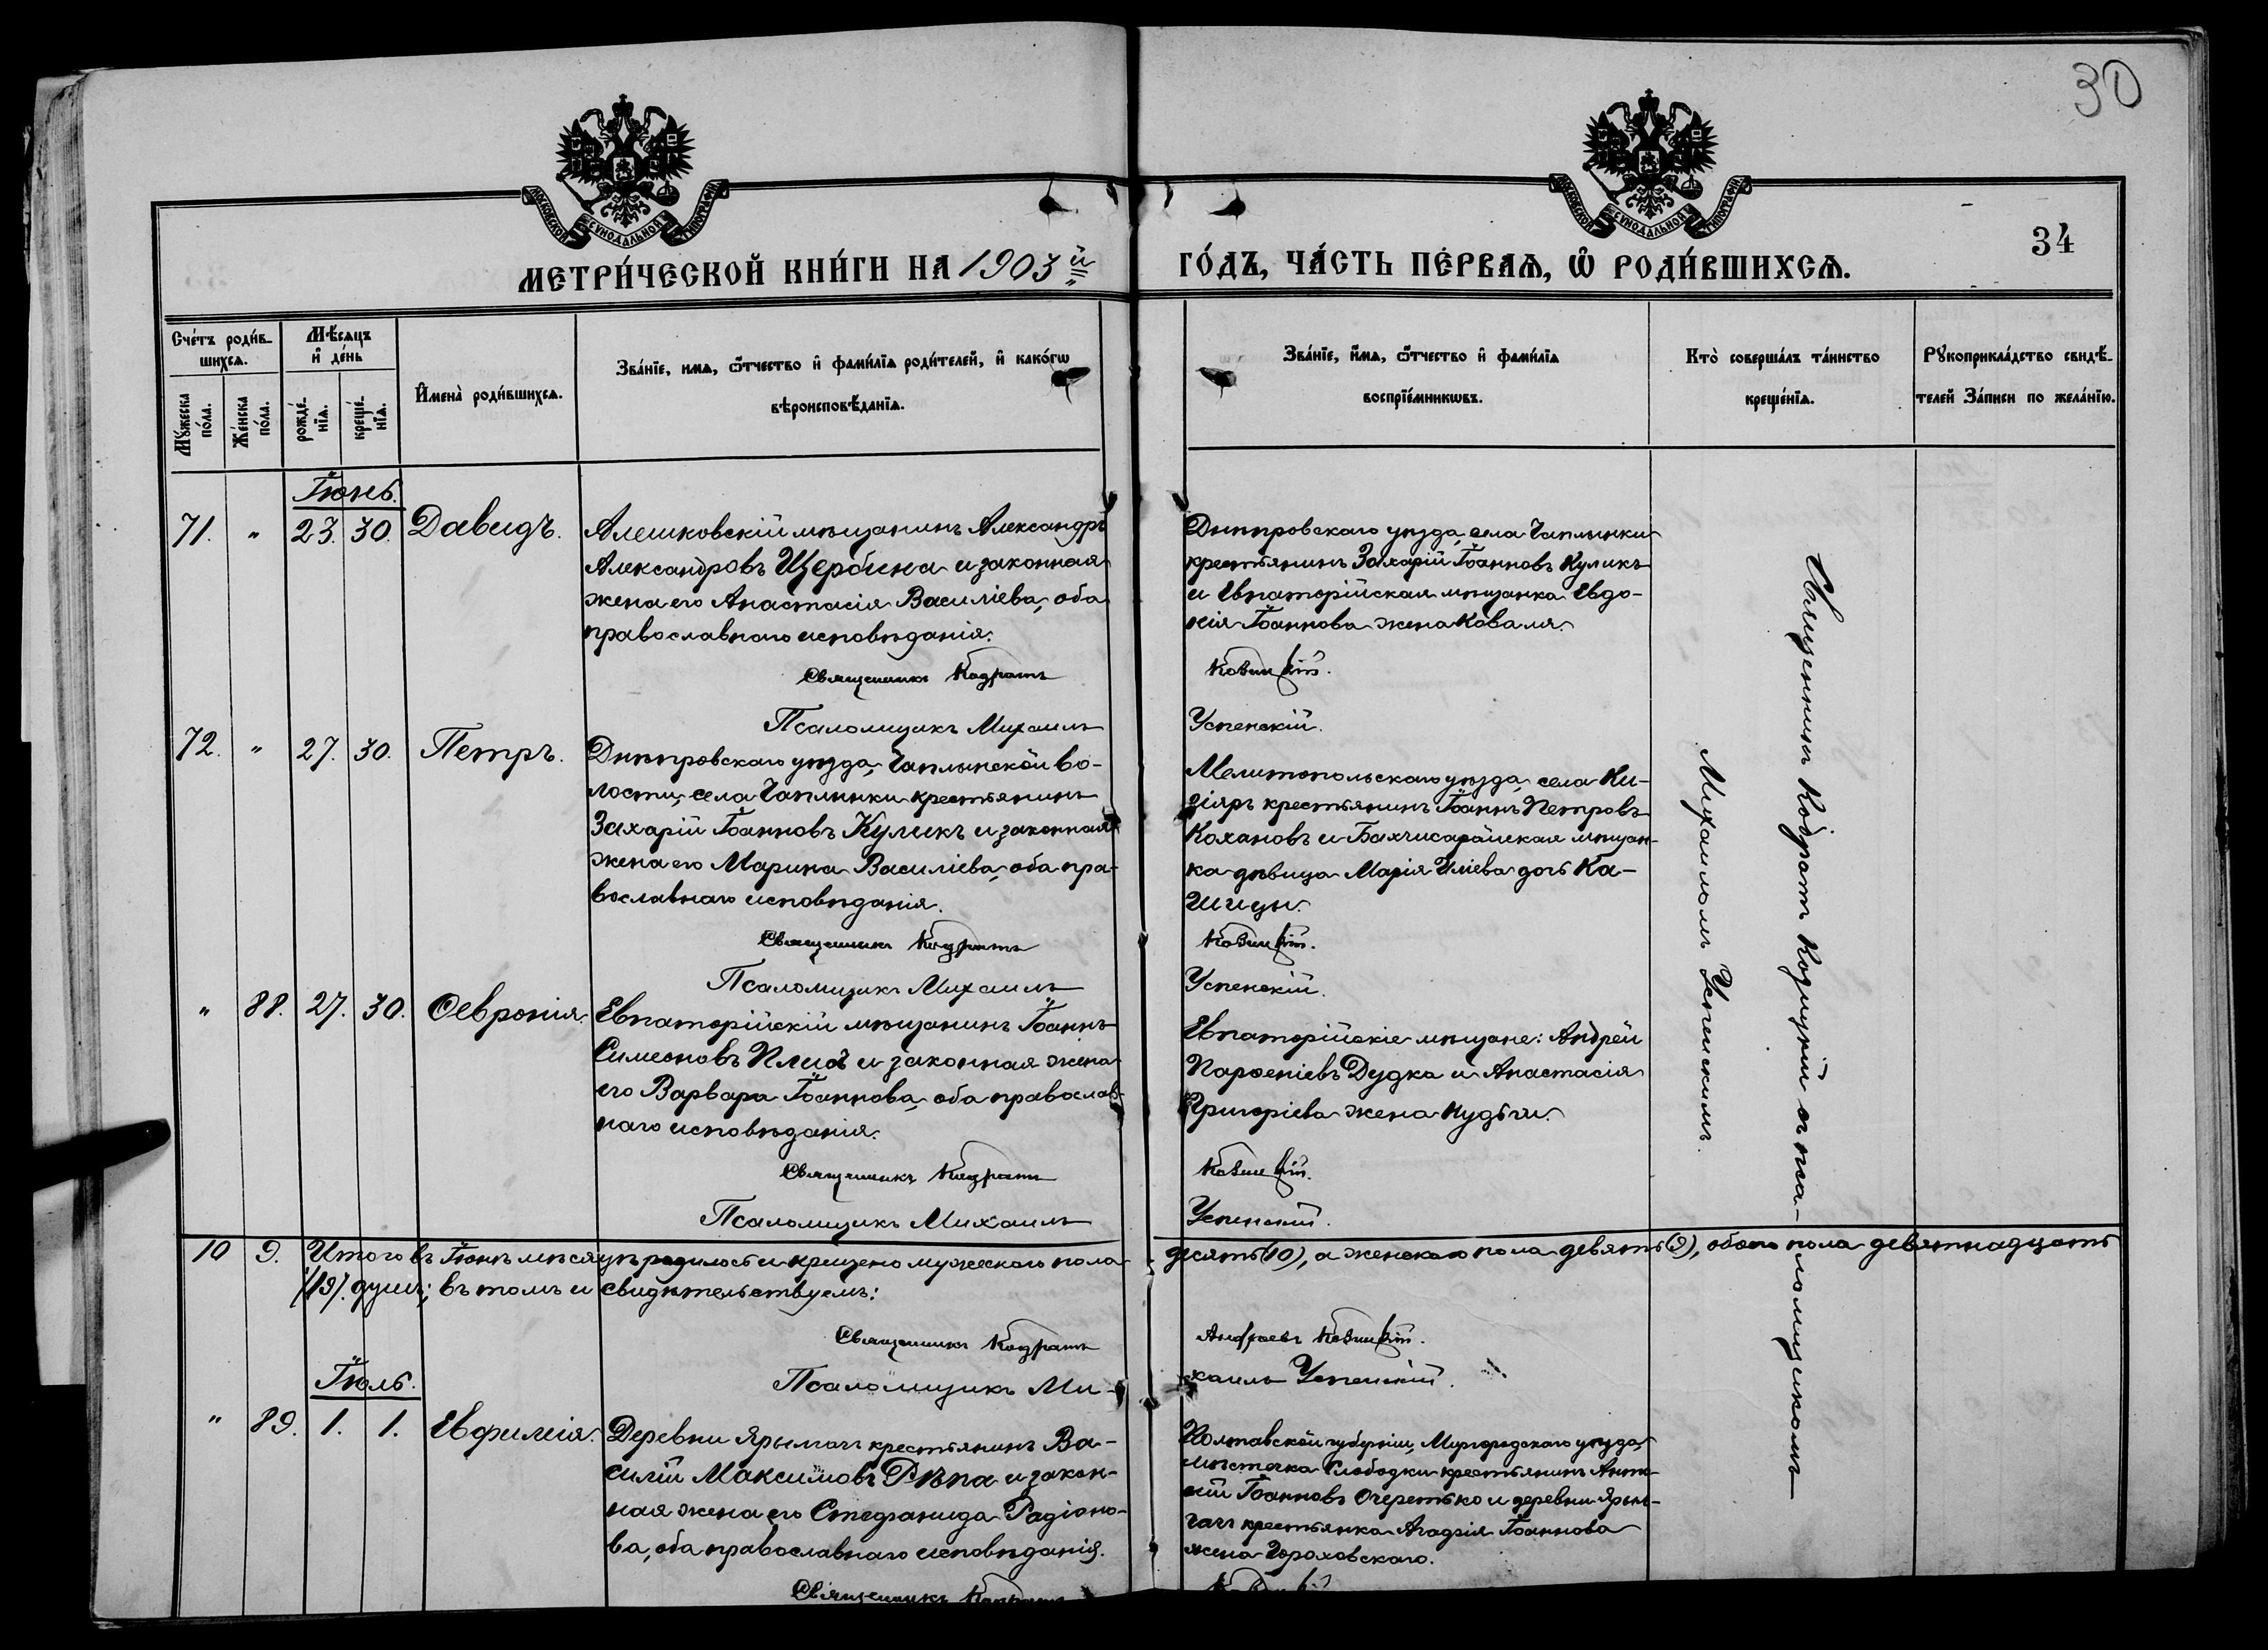 30
34
МЕТРИ́ЧЕСКОЙ КНИ́ГИ НА 1903й
ГО́ДЪ, ЧА́СТЬ ПЕ́РВАѦ, Ѡ҆ РОДИ́ВШИХСѦ.
МОСКОВСКОЙ СѴНОДАЛЬНОЙ ТИПОГРАФІИ
МОСКОВСКОЙ СѴНОДАЛЬНОЙ ТИПОГРАФІИ
Сче́тъ роди́в-
шихсѧ.
Мꙋ́жеска по́ла.
Же́нска по́ла.
Мѣ́сѧцъ
и҆ де́нь
рожде́-
нїѧ.
креще́-
нїѧ.
И҆мена̀ роди́вшихсѧ.
Зва́нїе, и́мѧ, ѻ҆́тчество и҆ фами́лїѧ роди́телей, и҆ како́гѡ
вѣроисповѣ́данїѧ.
Зва́нїе, и҆́мѧ, ѻ҆́тчество и҆ фами́лїѧ
воспрїе́мникѡвъ.
Кто̀ соверша́лъ та́инство
креще́нїѧ.
Рꙋкоприкла́дство свидѣ́-
телей За́писи по жела́нїю.
Іюнь.
71. " 23. 30. Давидъ.
Алешковскій мѣщанинъ Александръ
Александровъ Щербина и законная
жена его Анастасія Василіева, оба
православнаго исповѣданія.
Священникъ Кодратъ
Псаломщикъ Михаилъ
Днѣпровскаго уѣзда, села Чаплынки
крестьянинъ Захарій Іоанновъ Куликъ
и Евпаторійская мѣщанка Евдо-
кія Іоаннова жена Коваля.
Успенскій.
72. " 27. 30. Петръ.
Днѣпровскаго уѣзда, Чаплынской во-
лости, села Чаплынки крестьянинъ
Захарій Іоанновъ Куликъ и законная
жена его Марина Василіева, оба пра-
вославнаго исповѣданія.
Священникъ Кодратъ
Псаломщикъ Михаилъ
Мелитопольскаго уѣзда, села Ки-
зіяръ крестьянинъ Іоаннъ Петровъ
Кохановъ и Бахчисарайская мѣщан-
ка дѣвица Марія Иліева дочь Ка-
шицы.
Успенскій.
" 88. 27. 30. Ѳевронія.
Евпаторійскій мѣщанинъ Іоаннъ
Симеоновъ и законная жена
его Варвара Іоаннова, оба православ-
наго исповѣданія.
Священникъ Кодратъ
Псаломщикъ Михаилъ
Евпаторійскіе мѣщане: Андрей
Парѳеніевъ Дудка и Анастасія
Григоріева жена
Успенскій.
Священникъ Кодратъ съ пса-ломщикомъ
Михаиломъ Успенскимъ.
10 9. Итого въ Іюнѣ мѣсяцѣ родилось и крещено мужескаго пола
десять (10), а женскаго пола девять (9), обоего пола девятнадцать
(19) душъ; въ томъ и свидѣтельствуемъ:
Священникъ Кодратъ
Андреевъ
Псаломщикъ Ми-
хаилъ Успенскій.
Іюль.
" 89. 1. 1. Евфимія.
Деревни Ярылгачъ крестьянинъ Ва-
силій Максимовъ Рѣпа и закон-
ная жена его Стефанида Радіоно-
ва, оба православнаго исповѣданія.
Священникъ
Полтавской губерніи, Миргородскаго уѣзда,
мѣстечка Слободки крестьянинъ
Іоанновъ Очеретько и деревни Ярыл-
гачъ крестьянка Агафія Іоаннова
жена Гороховскаго.